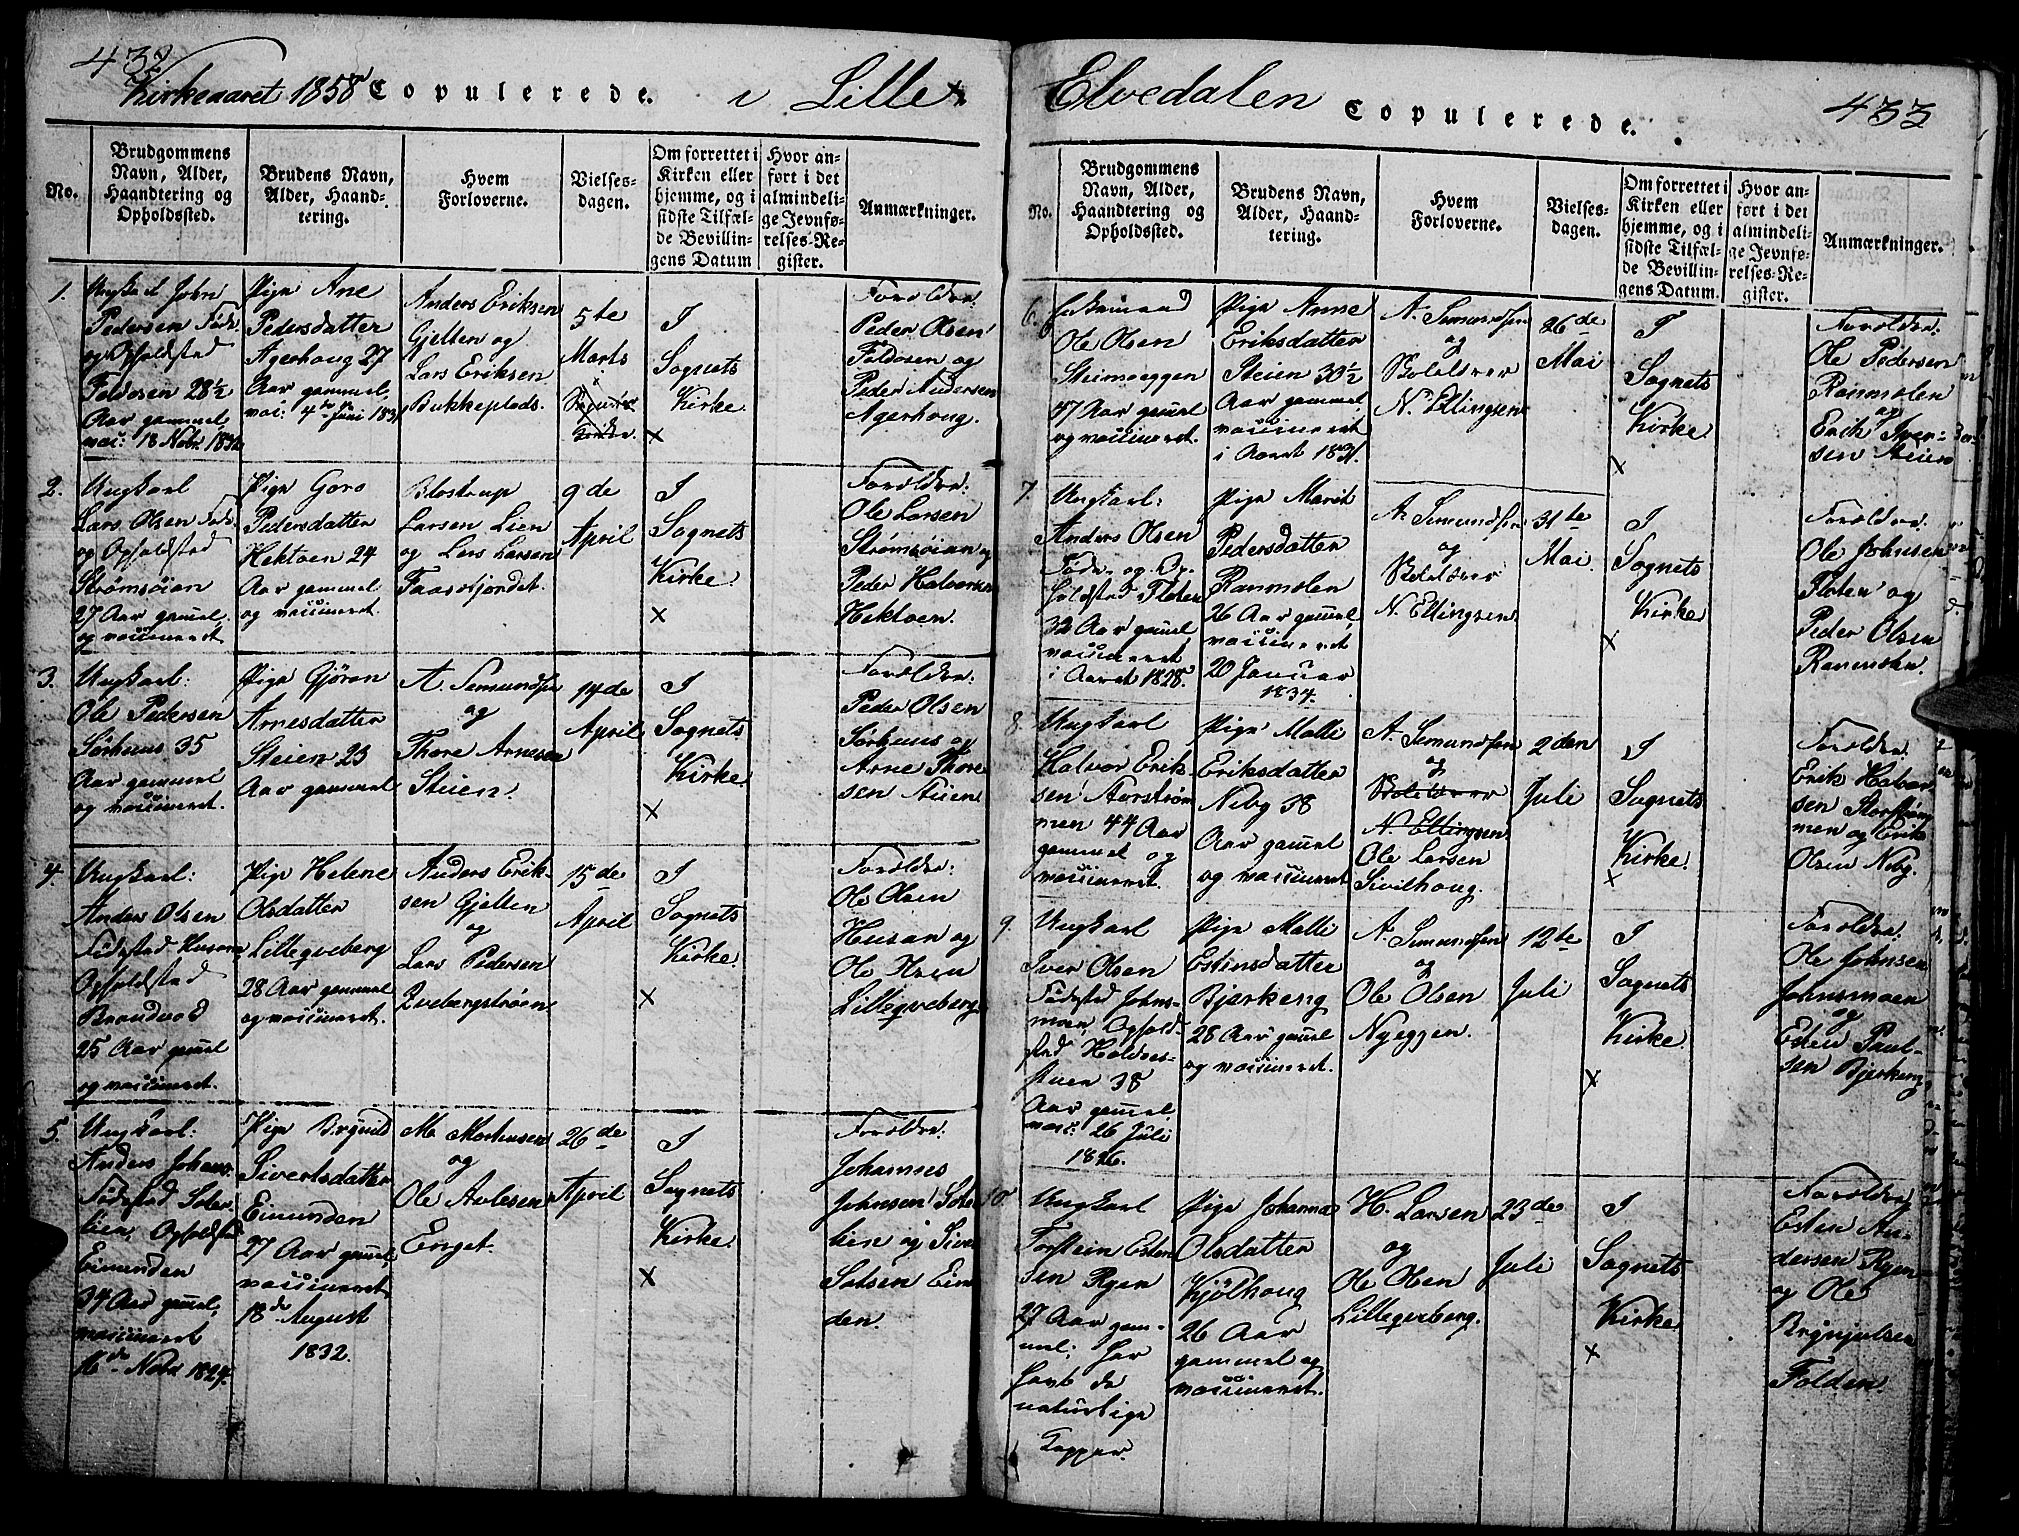 432
Kirkeaaret 1858 Copulerede. i Lille
No.
Brudgommens
Navn, Alder,
Haandtering og
Opholdssted.
Brudens Navn,
Alder, Haand-
tering.
Hvem
Forloverne.
Vielses-
dagen.
Om forrettet i
Kirken eller
hjemme, og i
sidste Tilfæl-
de Bevillin-
gens Datum
Hvor an-
ført i det
almindeli-
ge Jevnfø-
relses-Re-
gister.
Anmærkninger.
1.
Ungkarl John
Pedersen Føde-
og Opholdsted
Foldosen 28½
Aar gammel,
vac: 18 Nobr.
Pige Ane
Pedersdatter
Agerhoug 27
Aar gammel,
vac: 4de Juni 1831
Anders Eriksen
Gjelten og
Lars Eriksen
Bukkeplads.
5te
Marts
I
Sognets
Kirke
x
Forældre:
Peder Olsen
Foldosen og
Peder Andersen
Agerhoug.
2.
Ungkarl
Lars Olsen Føde-
og Opholdsted
Strømsøian
27 Aar gammel
og vaccineret
Pige Goro
Pedersdatter
Hektoen 24
Aar gammel
og vaccineret.
Blostrup
Larsen Lien
og Lars Larsen
9de
April
I
Sognets
Kirke
x
Forældre:
Ole Larsen
Strømsøian og
Peder Halvorsen
Hektoen.
3.
Ungkarl:
Ole Pedersen
Sørhuus 35
Aar gammel
og vaccineret.
Pige Gjøran
Arnesdatter
Steien 23
Aar gammel
A. Semundsen
og
Thore Arnesen
Steien.
14de
April
I
Sognets
Kirke
x
Forældre:
Peder Olsen
Sørhuus og
Arne Thore-
sen Steien
4.
Ungkarl:
Anders Olsen
Fødested Husan
Opholdsted
Brandvod
25 Aar gammel
og vaccineret.
Pige Helene
Olsdatter
Lilleqveberg
28 Aar gammel
og vaccineret.
Anders Erik-
sen Gjelten
og
Lars Pedersen
Qvebergstrøen
15de
April
I
Sognets
Kirke.
x
Forældre:
Ole Olsen
Husan og
Ole Olsen
Lilleqveberg
5.
Ungkarl:
Anders Johans.
Fødested Soter-
lien, Opholdsted
Eimunden
34 Aar gammel,
vaccineret
16de Nobr. 1824.
Pige Brynild
Sivertsdatter
Eimunden
27 Aar gammel,
vaccineret
18de August
1832.
M. Mortensen
og
Ole Avlesen
Enget.
26de
April
I
Sognets
Kirke.
x
Forældre:
Johannes
Johnsen Soter-
lien og Siver
Eimun-
den.
Elvedalen Copulerede. 433
No.
Brudgommens
Navn, Alder,
Haandtering og
Opholdssted.
Brudens Navn,
Alder, Haand-
tering.
Hvem
Forloverne.
Vielses-
dagen.
Om forrettet i
Kirken eller
hjemme, og i
sidste Tilfæl-
de Bevillin-
gens Datum.
Hvor an-
ført i det
almindeli-
ge Jevnfø-
relses-Re-
gister.
Anmærkninger.
6.
Enkemand
Ole Olsen
Steimoeggen
47 Aar gammel
og vaccineret.
Pige Anne
Eriksdatter
Steien 30½
Aar gammel,
vaccineret
i Aaret 1831.
A. Semundsen
og
N. Ellingsen
26de
Mai
I
Sognets
Kirke
x
Forældre:
Ole Pedersen
Ranmolen
og
Erik Iver-
sen Steien
7.
Ungkarl:
Anders Olsen
Føde- og Op-
holdsted Floten
32 Aar gammel
vaccineret
i Aaret 1828.
Pige Marit
Pedersdatter
Ranmolen
26 Aar gammel,
vaccineret
20 Januar
1834.
A. Semundsen
og
N. Ellingsen
31te
Mai
I
Sognets
Kirke
x
Forældre:
Ole Johnsen
Floten og
Peder Olsen
Ranmolen.
8.
Ungkarl
Halvor Erik-
sen Storstrøm-
men 44 Aar
gammel og
vaccineret.
Pige Malli
Eriksdatter
Neby 38
Aar gammel
og vaccineret
A. Semundsen
og
N. Ellingsen
Ole Larsen
Sivilhoug.
2den
Juli
I
Sognets
Kirke.
x
Forældre:
Erik Halvor-
sen Storstrøm-
men og Erik
Olsen Neby.
9.
Ungkarl
Iver Olsen
Fødested Johns-
moen, Ophold-
sted Holdves-
stuen 38
Aar gammel,
vacc: 26 Juli
1826.
Pige Malli
Estensdatter
Bjerkeng
28 Aar gammel
og vaccineret.
A. Semundsen
og
Ole Olsen
Nyeggen.
12te
Juli
I
Sognets
Kirke
x
Forældre:
Ole Johnsen
Johnsmoen
og
Esten Paul-
sen Bjerkeng
10
Ungkarl
Torstein Esten-
sen Ryen
27 Aar gam-
mel; har
havt de
naturlige
Kopper.
Pige Johanna
Olsdatter
Kjølhoug
26 Aar
gammel og
vaccineret.
H. Larsen
og
Ole Olsen
Lilleqveberg.
23de
Juli
I
Sognets
Kirke
x
Forældre
Esten An-
dersen Ryen
og Ole
Brynjulsen
Folden.